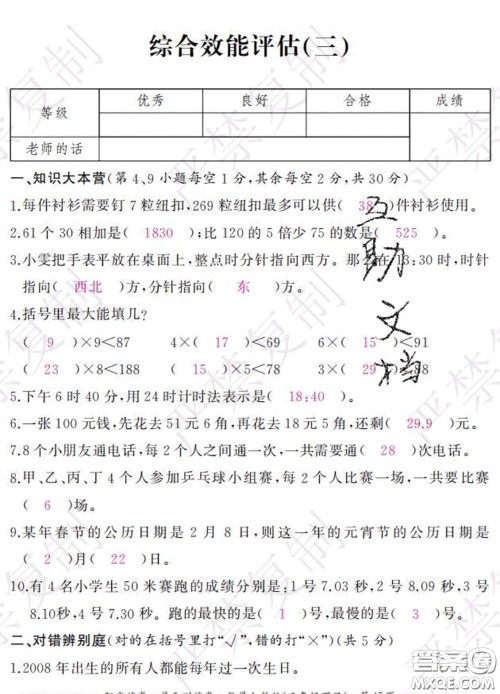 综合效能评估(三)
等级 优秀 良好 合格 成绩
老师的话
一、知识大本营(第4、9小题每空1分,其余每空2分,共30分)
1.每件衬衫需要钉7粒纽扣,269粒纽扣最多可以供( 38 )件衬衫使用。
2.61个30相加是( 1830 );比120的5倍少75的数是( 525 )。
3.小雯把手表平放在桌面上,整点时分针指向西方。那么在 :30时,时针
指向( 西北 )方,分针指向( 东 )方。
4.括号里最大能填几?
( 9 )×9<87 4×( 17 )<69 6×( 15 )<91
( 23 )×8<188 ( 15 )×5<78 3×( 29 )<88
5.下午6时40分,用24时计时法表示是( 18:40 )。
6.一张100元钱,先花去51元6角,再花去18元5角,还剩( 29.9 )元。
7.8个小朋友通电话,每2个人之间通一次,一共需要通( 28 )次电话。
8.甲、乙、丙、丁4个人参加乒乓球小组赛,每2个人比赛一场,一共要比赛
( 6 )场。
9.某年春节的公历日期是2月8日,则这一年的元宵节的公历日期是
( 2 )月( 22 )日。
10.有4名小学生50米赛跑的成绩分别是:1号7.03秒,2号8.09秒,3号
8.10秒,4号7.30秒。跑的最快的是( 1 )号,最慢的是( 3 )号。
二、对错辨别庭(对的在括号里打“√”,错的打“×”)(共5分)
1.2008年出生的所有人都能每年过一次生日。
互助文档
严禁复制
答案圈
MXQE.COM